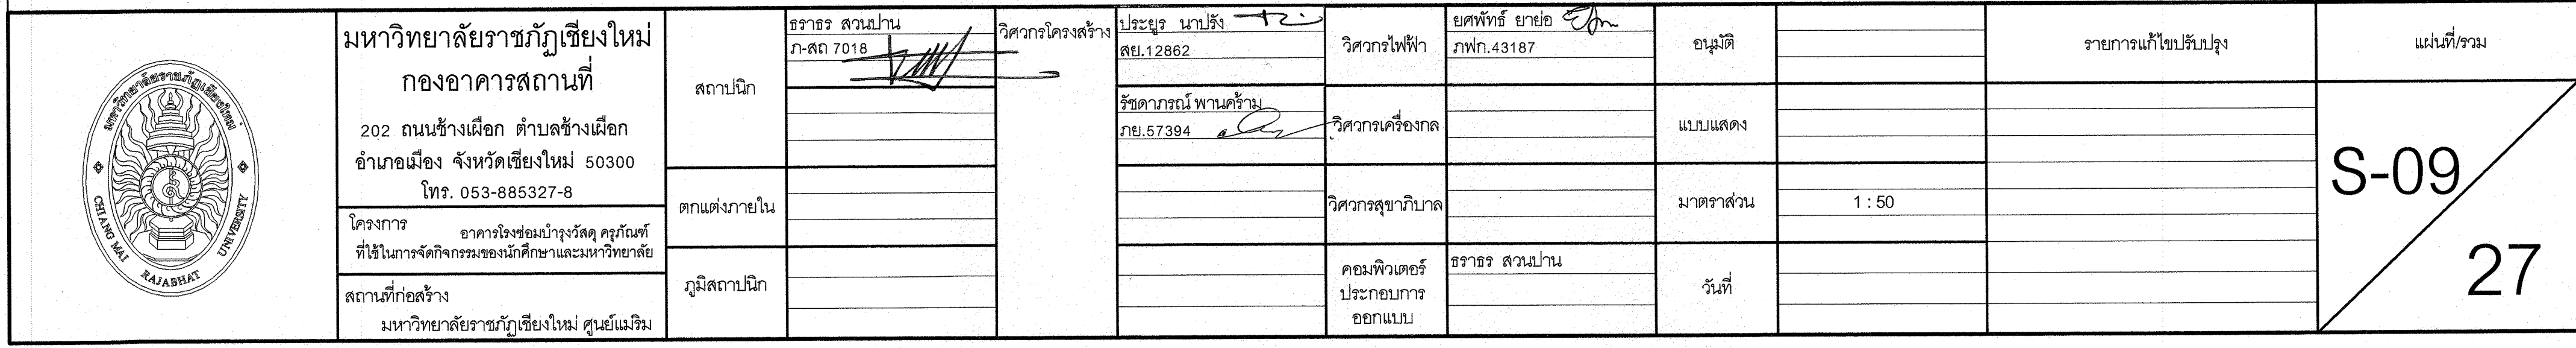 มหาวิทยาลัยราชภัฏเชียงใหม่
CHIANG MAI RAJABHAT UNIVERSITY
มหาวิทยาลัยราชภัฏเชียงใหม่
กองอาคารสถานที่
202 ถนนช้างเผือก ตำบลช้างเผือก
อำเภอเมือง จังหวัดเชียงใหม่ 50300
โทร. 053-885327-8
โครงการ
อาคารโรงซ่อมบำรุงวัสดุ ครุภัณฑ์
ที่ใช้ในการจัดกิจกรรมของนักศึกษาและมหาวิทยาลัย
สถานที่ก่อสร้าง
มหาวิทยาลัยราชภัฏเชียงใหม่ ศูนย์แม่ริม
สถาปนิก
ธราธร สวนปาน
ภ-สถ 7018
ตกแต่งภายใน
ภูมิสถาปนิก
วิศวกรโครงสร้าง
ประยูร นาปรัง
สย.12862
รัชดาภรณ์ พานคร้าม
ภย.57394
วิศวกรไฟฟ้า
ยศพัทธ์ ยาย่อ
ภฟก.43187
วิศวกรเครื่องกล
วิศวกรสุขาภิบาล
คอมพิวเตอร์
ประกอบการ
ออกแบบ
ธราธร สวนปาน
อนุมัติ
แบบแสดง
มาตราส่วน
1 : 50
วันที่
รายการแก้ไขปรับปรุง
แผ่นที่/รวม
S-09
27